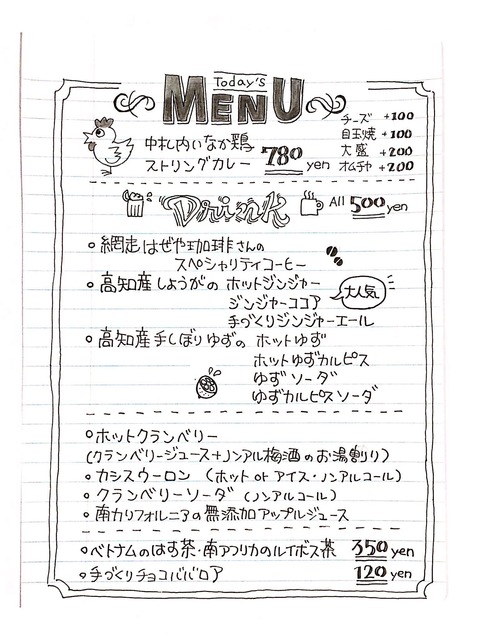 Today's
MENU
中札内いなか鶏
ストリングカレー 780 yen
チーズ +100
目玉焼 +100
大盛 +200
オムチャ +200
Drink All 500 yen
網走はぜや珈琲さんの
スペシャリティコーヒー
高知産しょうがの ホットジンジャー
ジンジャーココア
大人気
手づくりジンジャーエール
高知産手しぼりゆずの ホットゆず
ホットゆずカルピス
ゆずソーダ
ゆずカルピスソーダ
ホットクランベリー
(クランベリージュース+ノンアル梅酒のお湯割り)
カシスウーロン (ホット or アイス・ノンアルコール)
クランベリーソーダ (ノンアルコール)
南カリフォルニアの無添加アップルジュース
ベトナムのはす茶・南アフリカのルイボス茶 350 yen
手づくりチョコババロア 120 yen